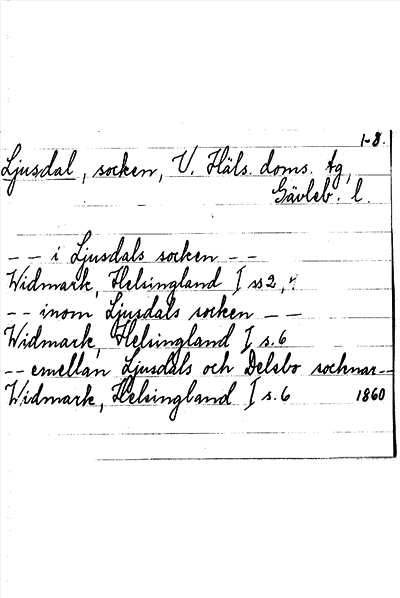 1-8.
Ljusdal, socken, V. Häls. doms. tg,
Gävleb. l.
-- i Ljusdals socken --
Widmark, Helsingland I ss 2,
-- inom Ljusdals socken --
Widmark, Helsingland I s. 6
-- emellan Ljusdals och Delsbo socknar--
Widmark, Helsingland I s. 6 1860